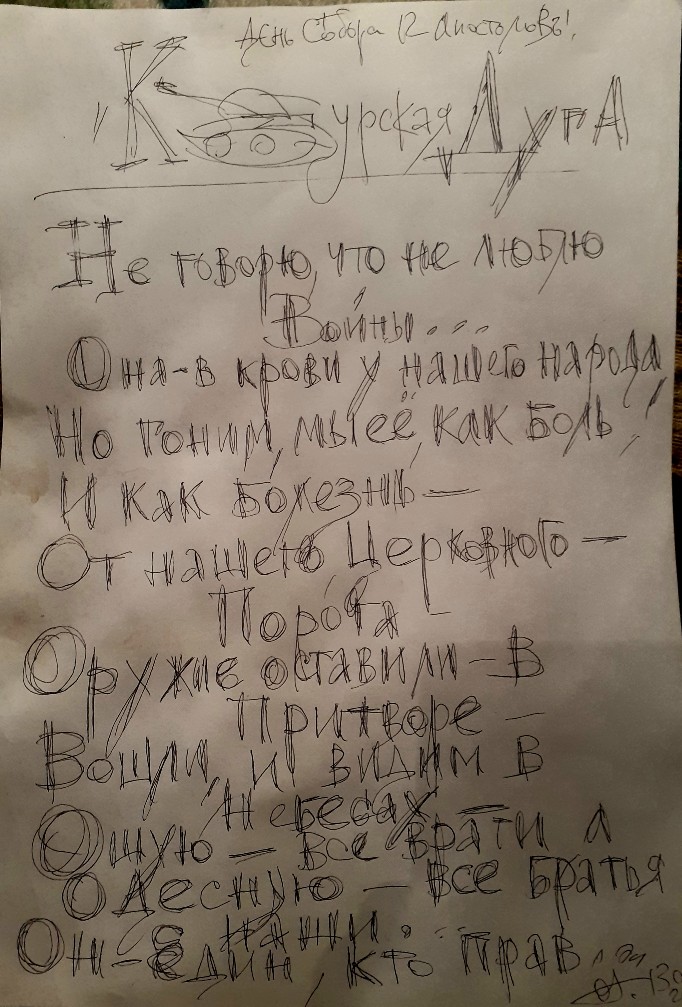 День Собора 12 Апостоловъ!
"Курская Дуга
Не говорю, что не люблю
Войны...
Она - в крови у нашего народа
Но гоним, мы её, как Боль,
И как Болезнь —
От нашего Церковного —
Порога —
Оружие оставили - В
Притворе —
Вошли, и видим В
Небесах —
Ошую — все врати, а
одесную — все братья
с нами...
Он - един, кто прав...